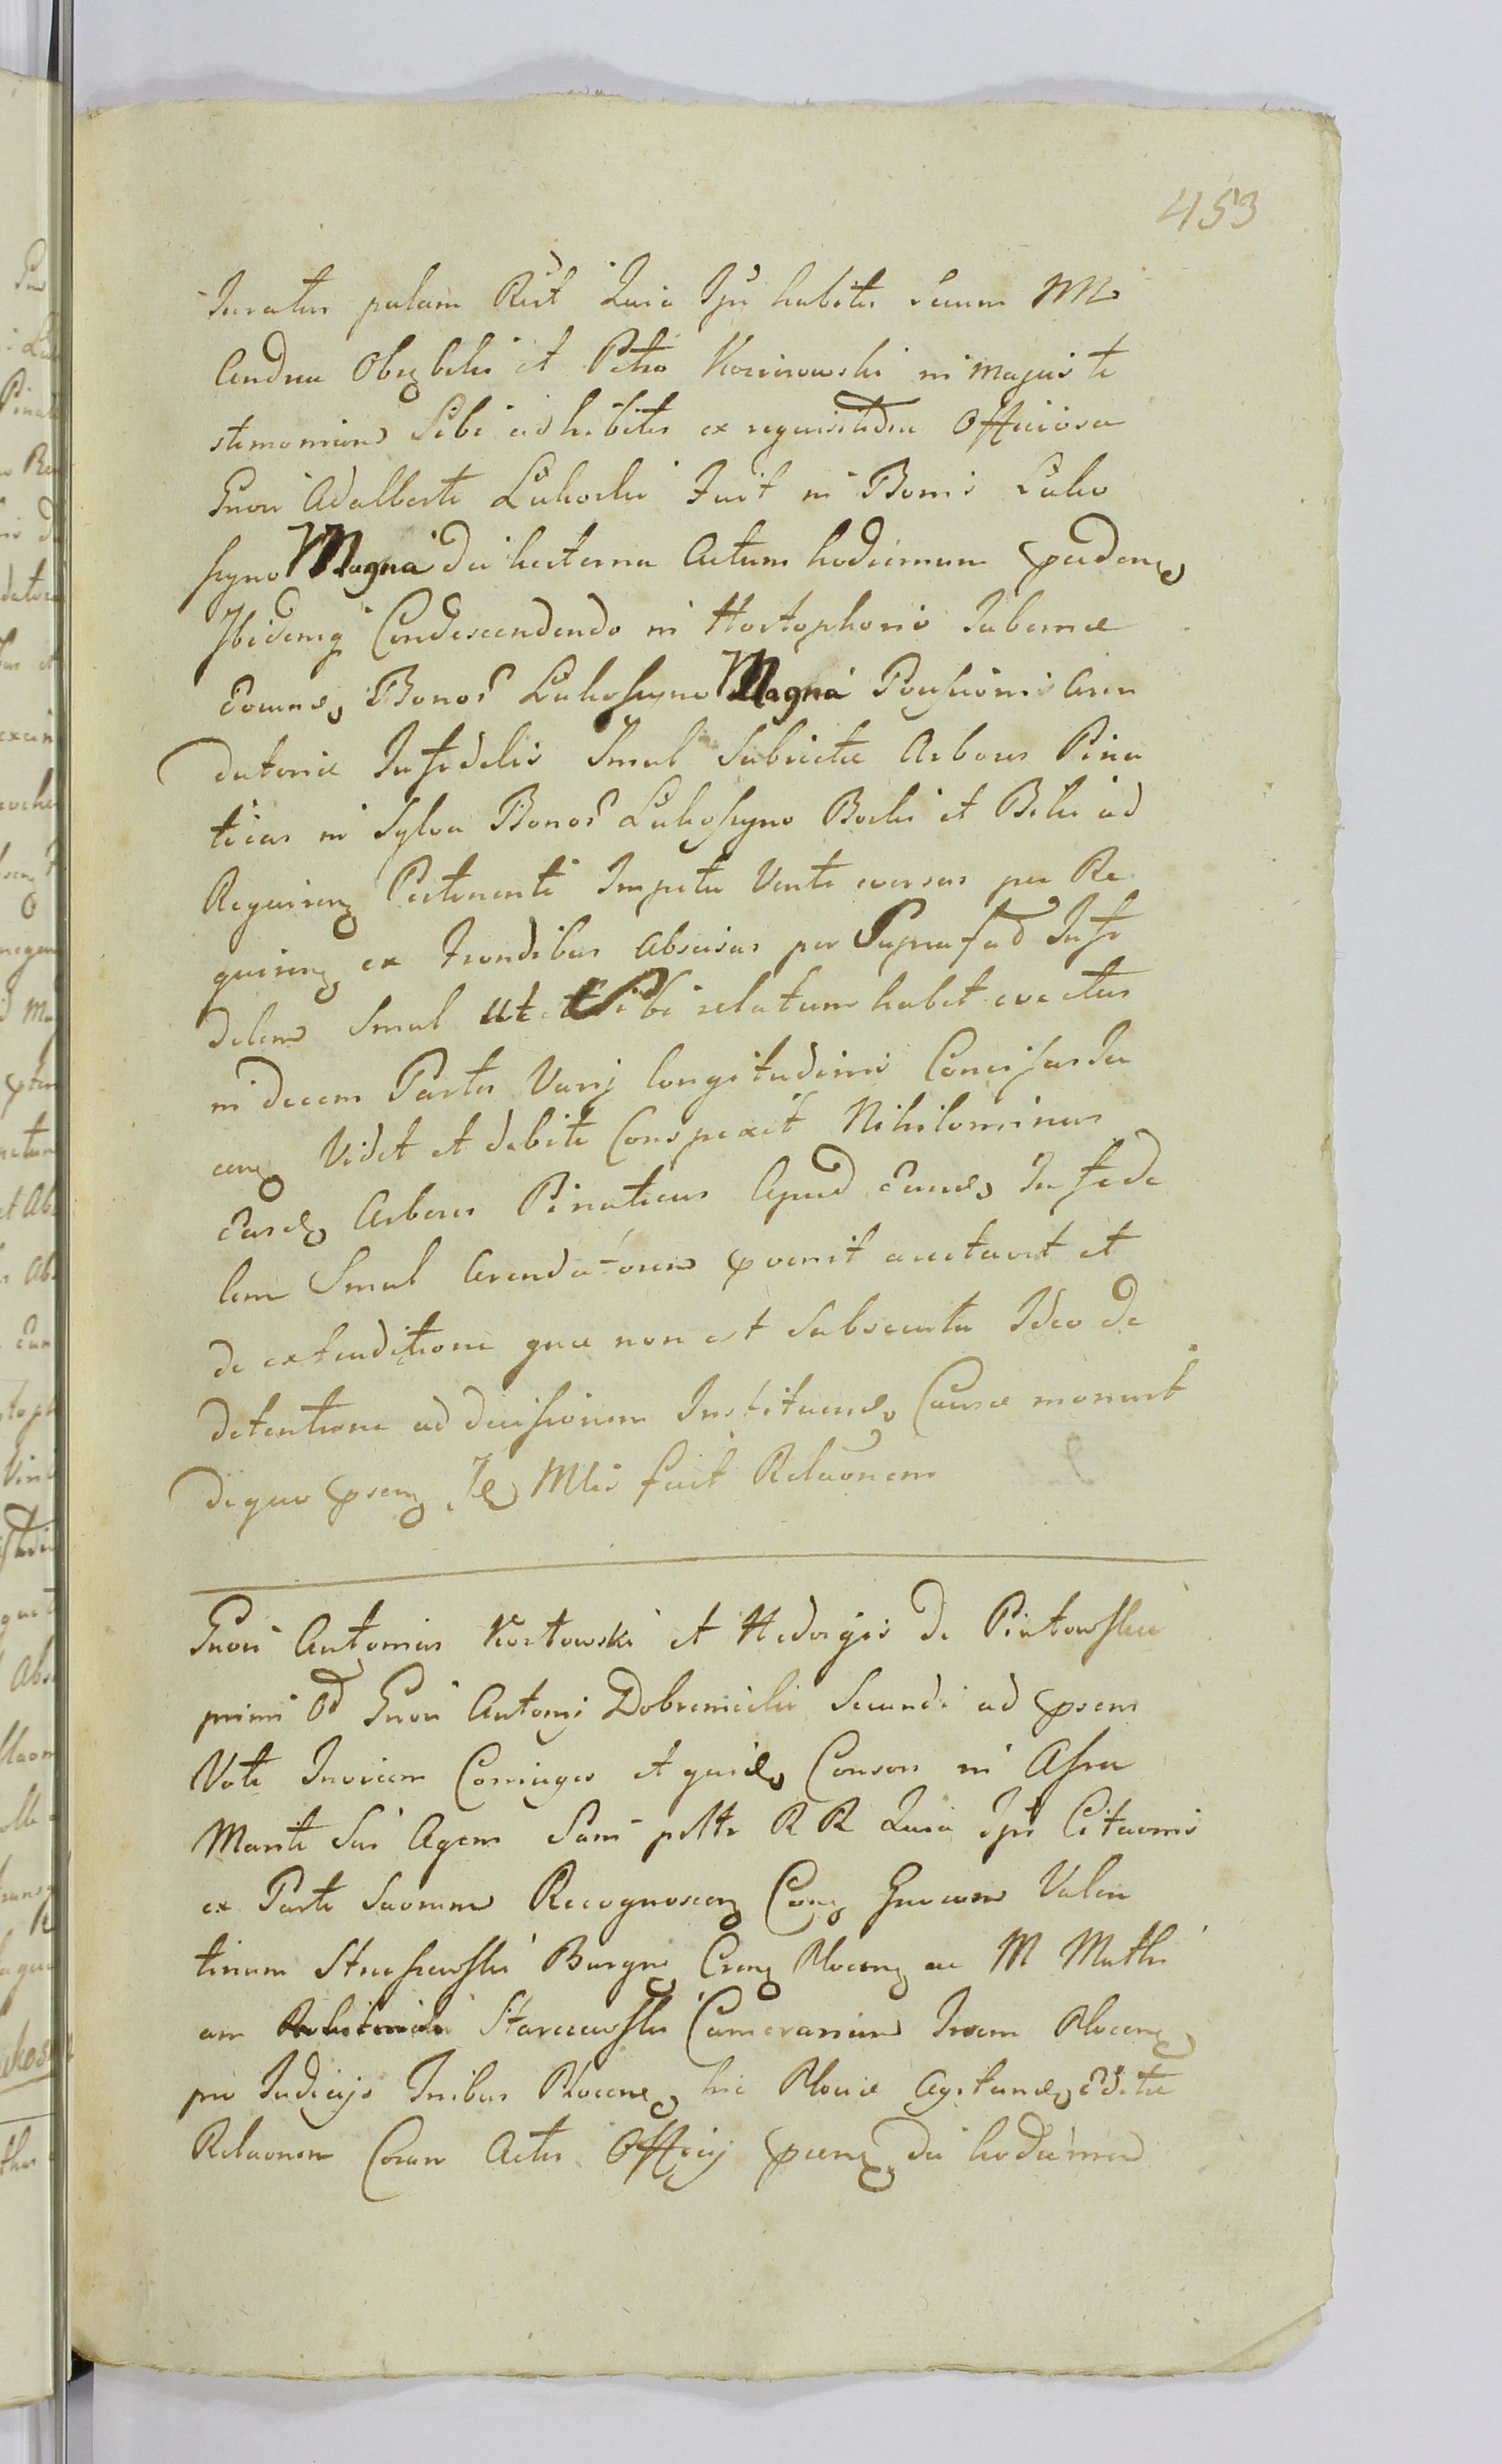 453
Juratus palam Rct Quia Ipse habitis secum MM
Andrea Obrębski et Petro Kozinowski in majus te
stimonium Sibi adhibitis ex requisitione Officiosa
Gnosi Adalberti Lukoski Fuit in Bonis Luko
szyno Magna die hesterna Actum hodiernum pcedene
Ibidemq Condescendendo in Hortophorio Tabernæ
Eorund Bonor Lukoszyno Magna Possionis Aren
datoriæ Infidelis Smul Subiectæ Arbores Pina
ticas in Sylva Bonor Lukoszyno Borki et Bilu ad
Requiren Pertinenti Impetu Venti eversas per Re
quiren ex Frondibus abscisas per Suprafad Infi
delem Smul ut Sibi relatum habet evectas
in decem Partes Varij longitudinis Concisas Ja
cen Vidit et debite Conspexit Nihilominus
Easd Arbores Pinaticas Apud Eund Infide
lem Smul Arendatorem pvenit arestavit et
de extraditione quæ non est Subsecuta Ideo de
detentione ad decisionem Instituend Causæ monuit
de quo psen Mlis fecit Relaonem
Gnosi Antonius Kortowski et Hedvigis de Piotowskie
primi Gnosi Antonij Dobrzenielu Secundi ad psens
Voti Invicem Coniuges et quid Consors in Assa
Mariti Sui Agens Sani R R Quia Ipsi Citaonis
ex Parte Suorum Recognoscen Con Gnosum Valen
tinum Straszewski Burgm Cren Plocen ac M Mathi
am Starczewski Camerarium Plocen
pro Judicijs Plocen hic Plociæ Agitand Editæ
Relaonem Coram Actis Officij pcen die hodierna